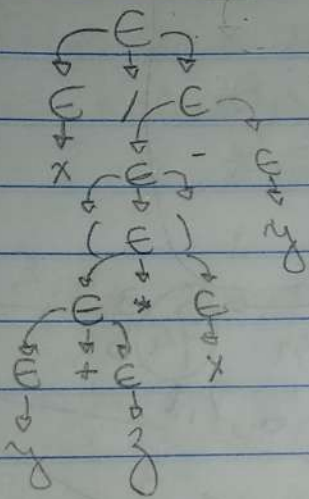 E
E / E
x E - E
( E ) y
E * E
E + E x
y z